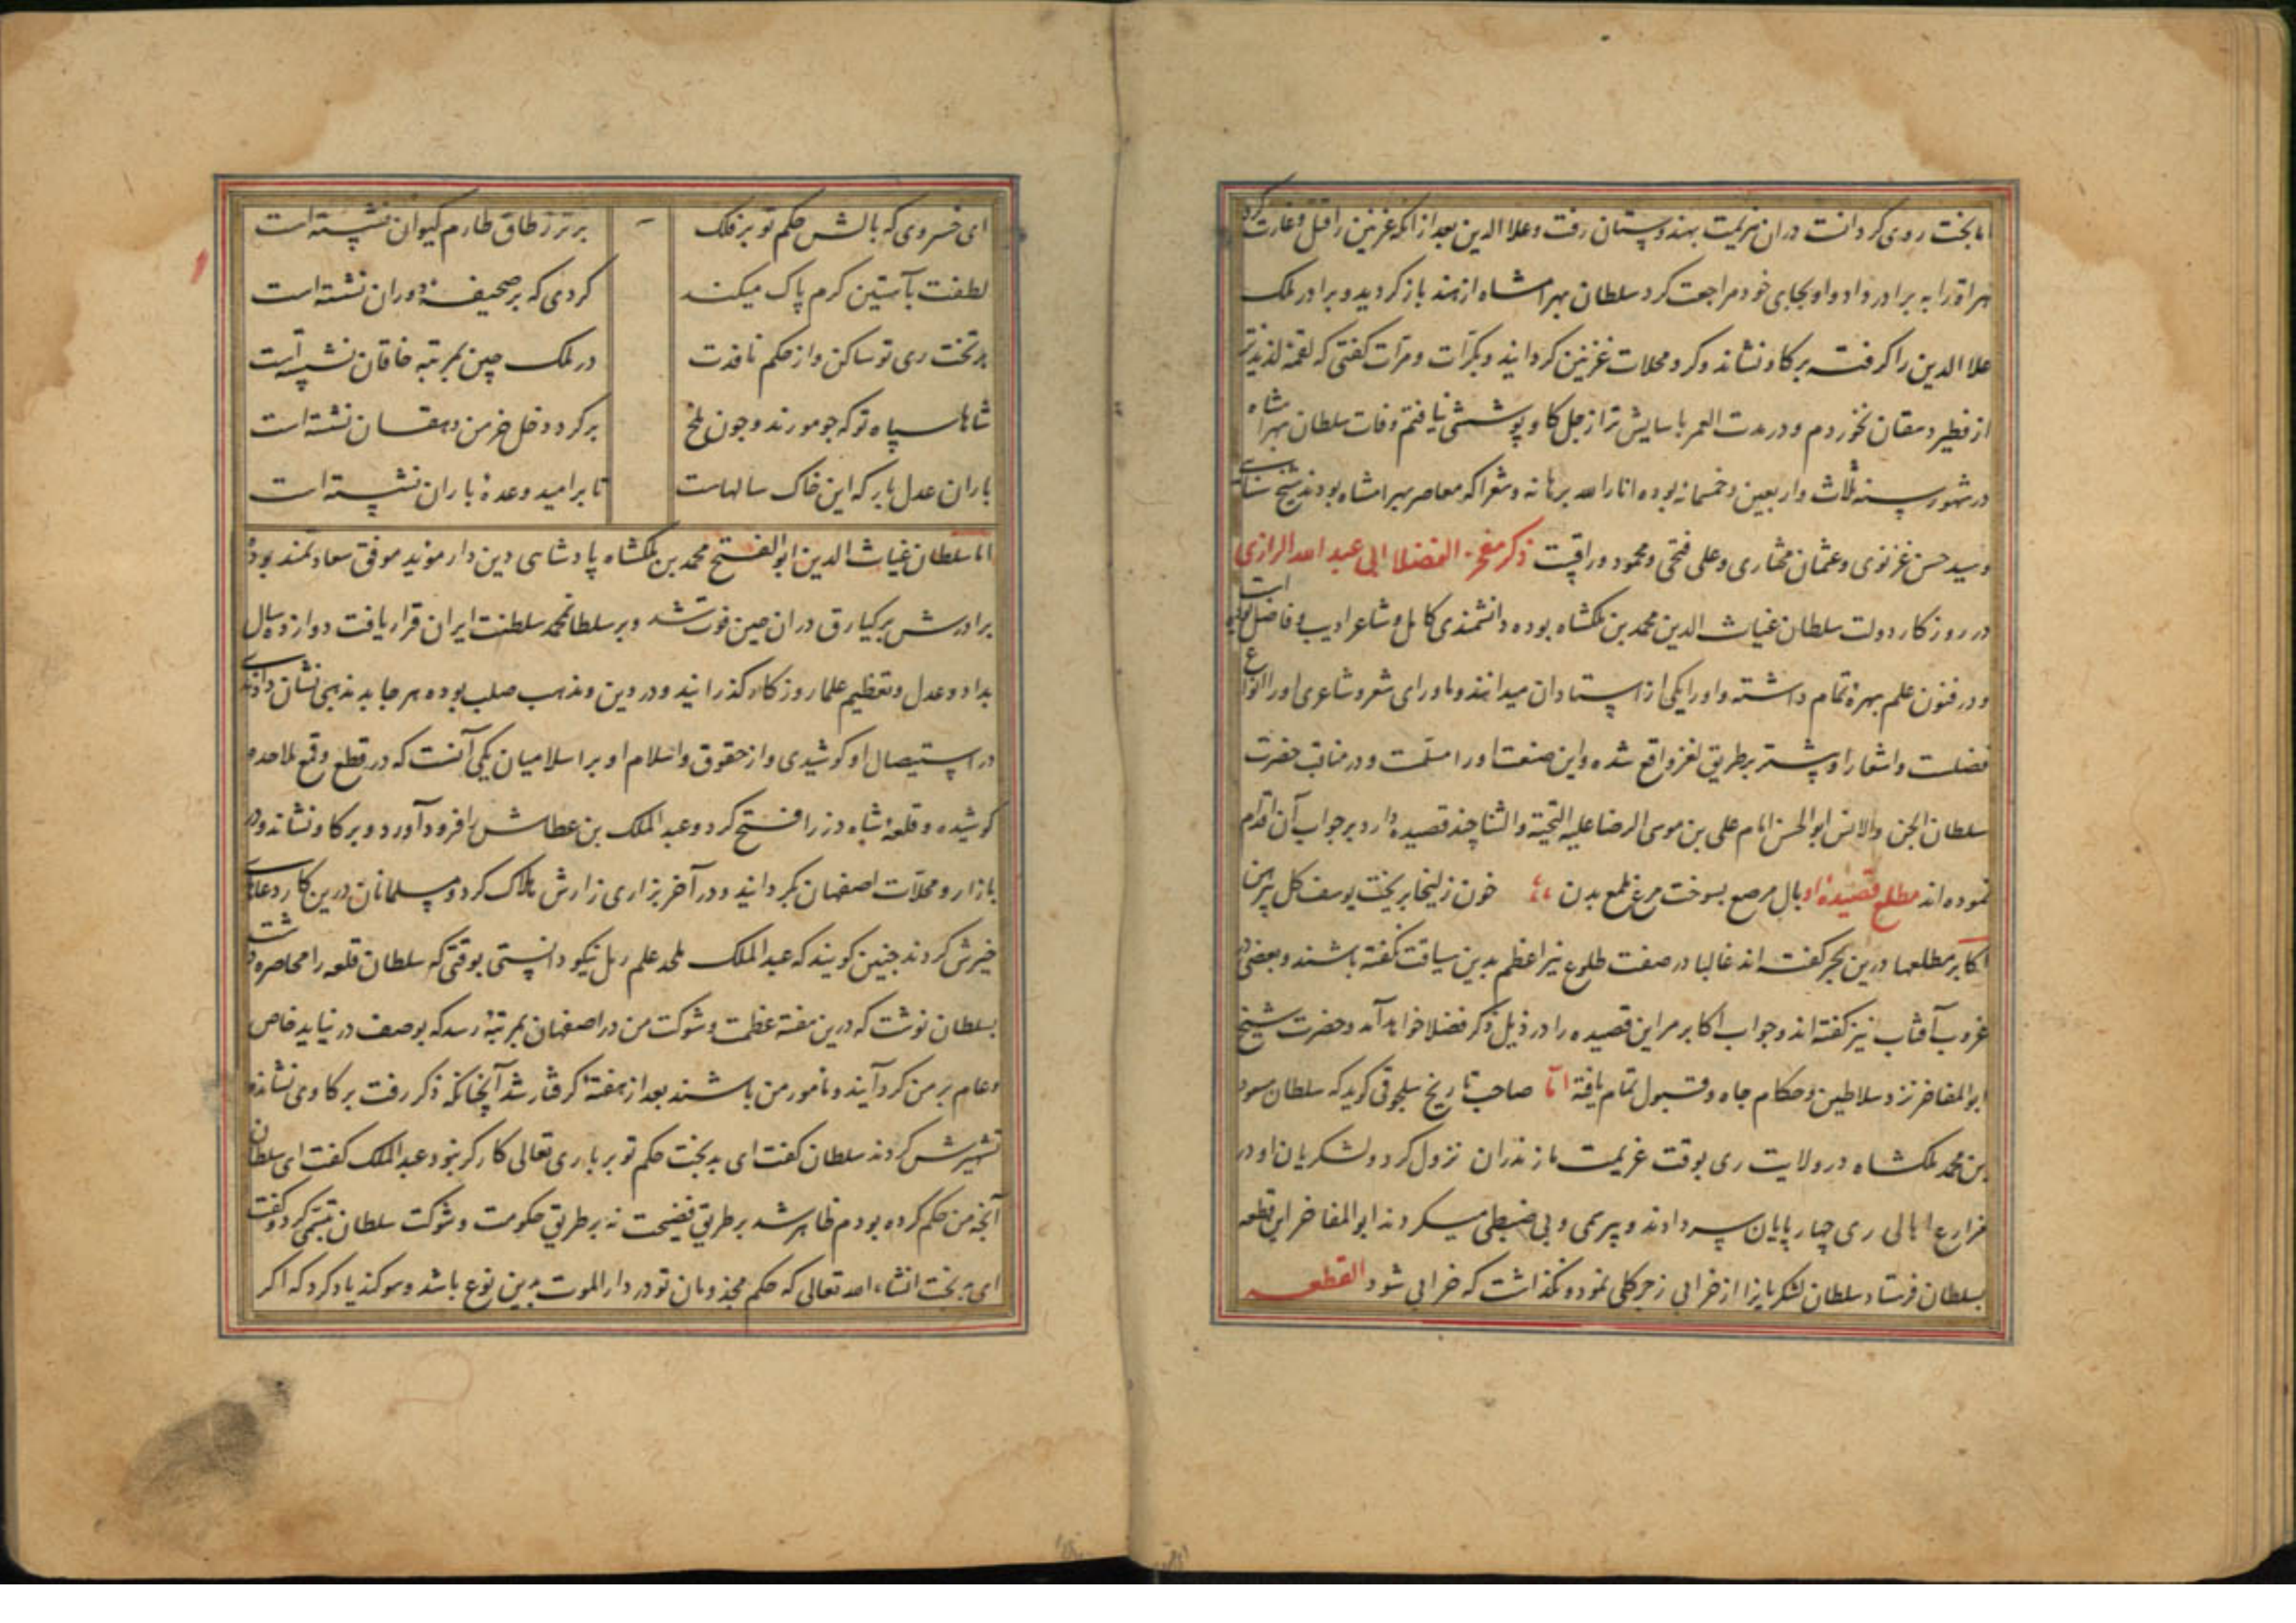 اما بخت روی کردانت دران هزیمت بهندوستان رفت و علاالدین بعد از انکه غزنین را قتل و غارت کرد
هراة را به برادر داد و او بجای خود مراجعت کرد سلطان بهرامشاه از هند باز کردید و برادر ملک
علاالدین را کرفته بر کاو نشاند و کرد محلات غزنین کردانید و بکرّات و مرّات کفتی که لقمهٔ لذیذتر
از فطیر دهقان نخوردم و در مدت العمر باسایش تر از جل کاو پوششی نیافتم وفات سلطان بهرامشاه
در شهور سنه ثلاث و اربعین و خمسمائه بوده انار الله برهانه و شعرا که معاصر بهرامشاه بودند شیخ سنایی
و سید حسن غزنوی و عثمان مختاری و علی فتحی و محمود وراقست ذکر مفخر الفضلا ابی عبد الله الرازی
در روزکار دولت سلطان غیاث الدین محمد بن ملکشاه بوده دانشمندی کامل و شاعر ادیب و فاضل بوده است
و در فنون علم بهرهٔ تمام داشته و اورا یکی از استادان میدانند و ماورای شعر و شاعری اورا انواع
فضلست و اشعار او پشتر بطریق لغز واقع شده و این صنعت اورا مسلّمست و در مناقب حضرت
سلطان الجن والانس ابو الحسن امام علی بن موسی الرضا علیه التحیة والثنا چند قصیده دارد بر جواب آن اقدام
نموده اند مطلع قصیدهٔ او بال مرصع بسوخت مرغ ملمع بدن خون زلیخا بریخت یوسف کل پیرهن
اکابر مطلعها درین بحر کفته اند غالبا در صفت طلوع نیّر اعظم بدین سیاقت نکفته باشند و بعضی در
غروب آفتاب نیز کفته اند و جواب اکابر مر این قصیده را در ذیل ذکر فضلا خواهد آمد و حضرت شیخ
ابو المفاخر نزد سلاطین و حکام جاه و قبول تمام یافته امّا صاحب تاریخ سلجوقی کوید که سلطان مسعود
بن محمد ملکشاه در ولایت ری بوقت عزیمت مازندران نزول کرد و لشکریان او در
مزارع اهالی ری چهارپایان سر دادند و بیرحمی و بی ضبطی میکردند ابو المفاخر این قطعه
بسلطان فرستاد سلطان لشکریانرا از خرابی زجر کلی نموده نکذاشت که خرابی شود القطعه
ای خسروی که بالش حکم تو بر فلک برتر ز طاق طارم کیوان نشسته است
لطفت بآستین کرم پاک میکند کردی که بر صحیفهٔ دوران نشسته است
بر تخت ری تو ساکن و از حکم نافذت در ملک چین بمرتبه خاقان نشسته است
شاها سپاه تو که چو مورند و چون ملخ بر کرد دخل خرمن دهقان نشسته است
باران عدل بار که این خاک سالهاست تا بر امید وعدهٔ باران نشسته است
اما سلطان غیاث الدین ابو الفتح محمد بن ملکشاه پادشاهی دین دار موید موفق سعادتمند بوده
برادرش برکیارق دران حین فوت شد و بر سلطان محمد سلطنت ایران قرار یافت دوازده سال
بداد و عدل و تعظیم علما روزکار کذرانید و در دین و مذهب صلب بوده هر جا بد مذهبی نشان دادندی
در استیصال او کوشیدی و از حقوق اسلام او بر اسلامیان یکی آنست که در قطع و قمع ملاحده
کوشیده و قلعهٔ شاه دز را فتح کرد و عبد الملک بن عطاش را فرود آورد و بر کاو نشاند و در
بازار و محلّات اصفهان بکردانید و در آخر بزاری زارش هلاک کرد و مسلمانان درین کار دعای
خیرش کردند چنین کویند که عبد الملک ملحد علم رمل نیکو دانستی بوقتی که سلطان قلعه را محاصره داشت
بسلطان نوشت که درین هفته عظمت و شوکت من در اصفهان بمرتبهٔ رسد که بوصف در نیاید خاص
و عام بر من کرد آیند و مامور من باشند بعد از هفتهٔ کرفتار شد آنچنانکه ذکر رفت بر کاوی نشانده
تشهیرش کردند سلطان کفت ای بدبخت حکم تو بر باری تعالی کارکر نبود عبد الملک کفت ای سلطان
آنچه من حکم کرده بودم ظاهر شد بر طریق فضیحت نه بر طریق حکومت و شوکت سلطان تبسّمی کرد و کفت
ای بدبخت انشاء الله تعالی که حکم مخذومان تو در دار الموت بدین نوع باشد و سوکند یاد کرد که اکر